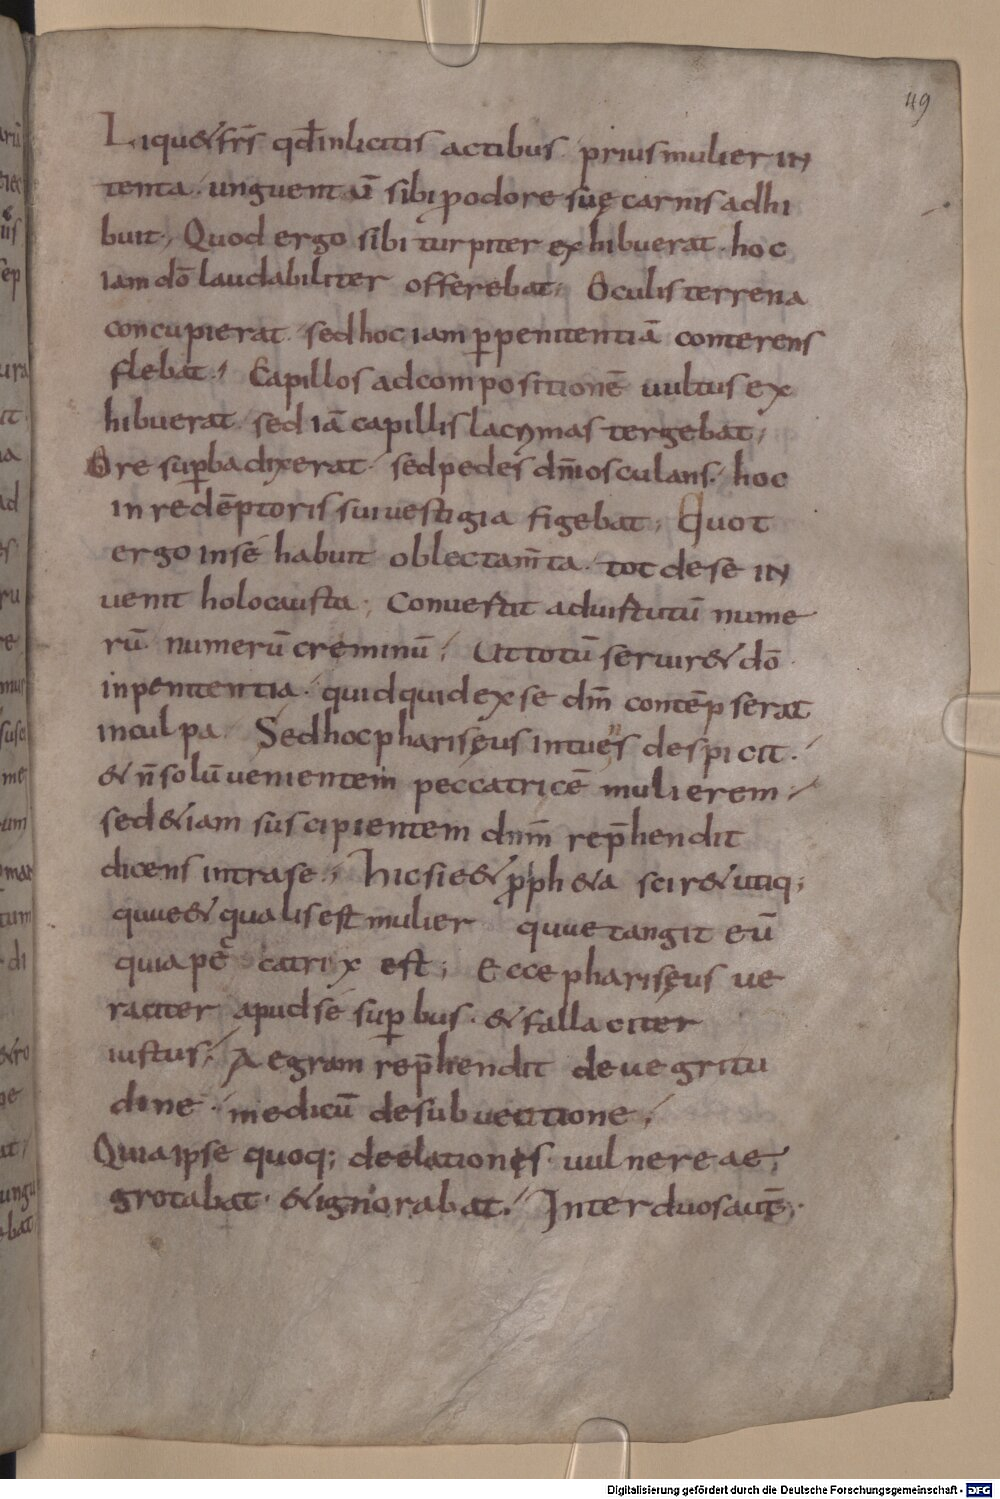 49
Liqu& fr̄s qd̄ inlicitis actibus prius mulier in
tenta. unguentū sibi ꝓ odore suę carnis adhi
buit; Quod ergo sibi turpiter exhibuerat. hoc
iam dō laudabiliter offerebat; Oculis terrena
concupierat. sed hoc iam ꝑ penitentiā conterens
flebat; Capillos ad compositionē uultus ex
hibuerat. sed iā capillis lacrymas tergebat;
Ore suꝑba dixerat. sed pedes dn̄i osculans. hoc
in redēptoris sui uestigia figebat; Quot
ergo in se habuit oblectam̄ta. tot de se in
uenit holocausta; Conuertit ad uirtutū nume
rū numerū creminū; Ut totū seruir& dō
in penitentia. quidquid ex se dn̄m contēpserat
in culpa. Sed hoc phariseus intuens despicit.
& n̄ solū uenientem peccatricē mulierem;
sed &iam suscipientem dnm̄ rep̄hendit
dicens intra se; Hic si e& ꝓph&a scir& utiq;
quue& qualis est mulier quue tangit eū
quia peccatrix est; Ecce phariseus ue
raciter apud se suꝑbus. & fallaciter
iustus; Aegram rep̄hendit de uegritu
dine. medicū de subuectione;
Quia ipse quoq; de elationis uulnere ae
grotabat. & ignorabat. Inter duos autē;
Digitalisierung gefördert durch die Deutsche Forschungsgemeinschaft - DFG